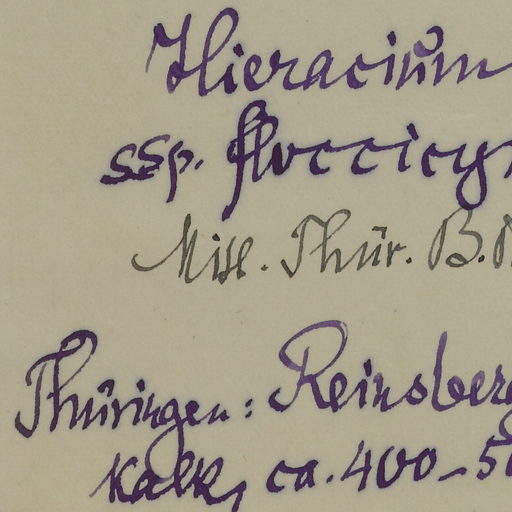 Hieracium
ssp. floccicy
Mitt. Thür. B.
Thüringen: Reinsberg
Kalk, ca. 400-50